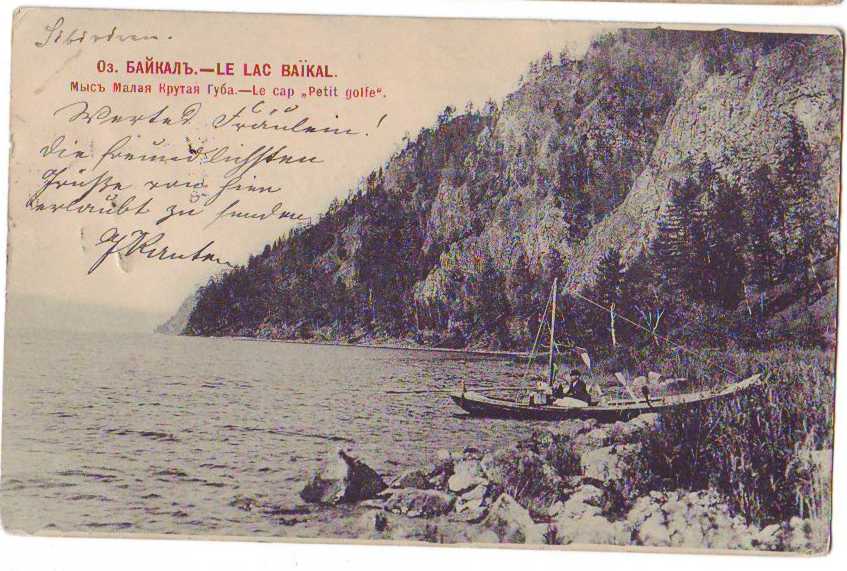 Sibirien.
Оз. БАЙКАЛЪ.—LE LAC BAÏKAL.
Мысъ Малая Крутая Губа.—Le cap „Petit golfe".
Wertes Fräulein!
die freundlichsten
Grüße von hier
erlaubt zu senden